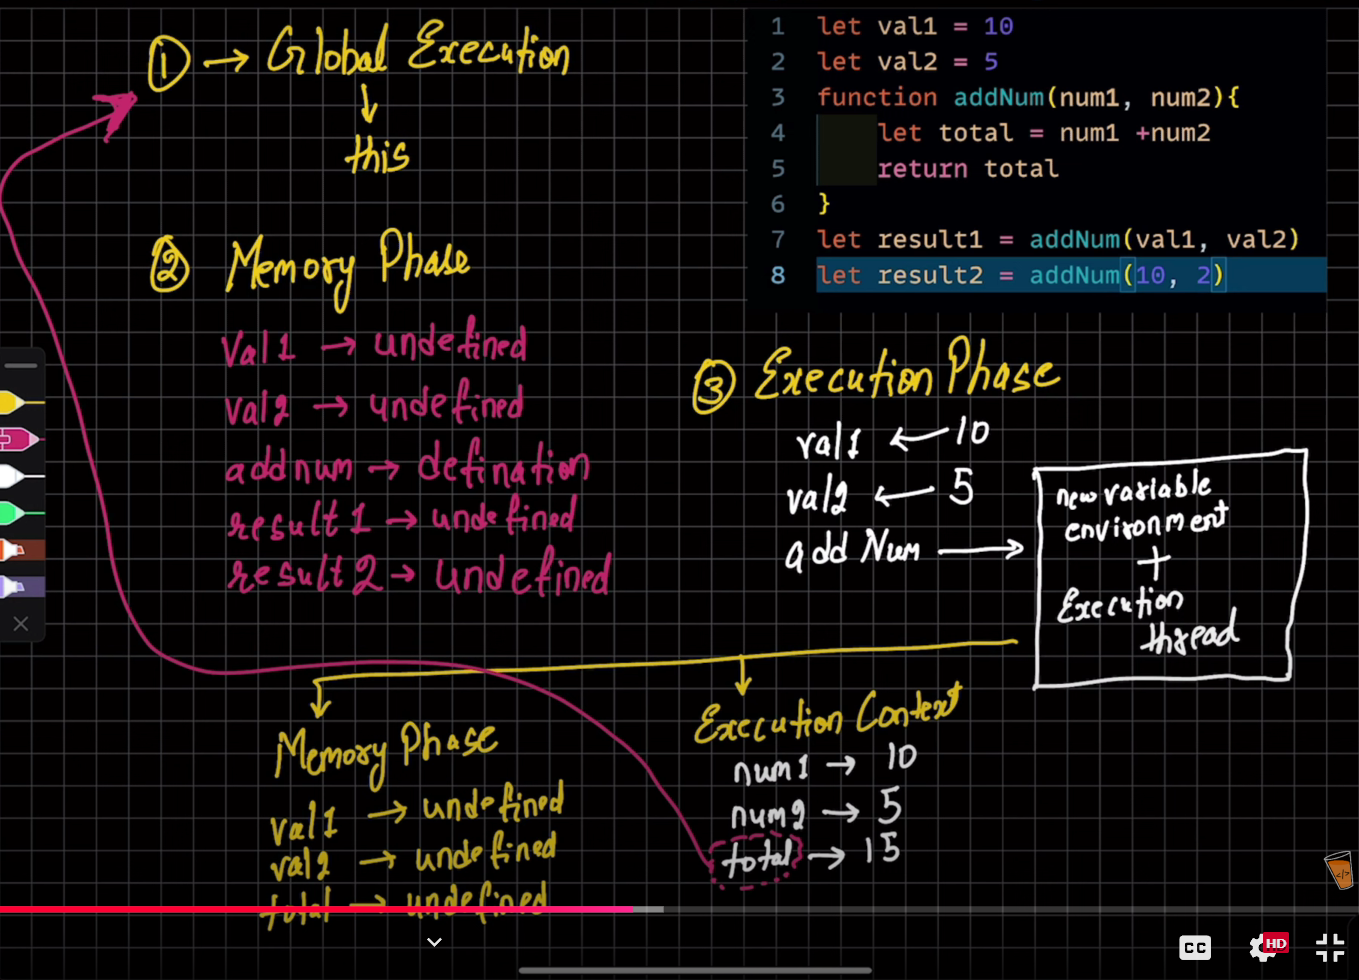 ① → Global Execution
↓
this
② Memory Phase
val1 → undefined
val2 → undefined
addnum → defination
result1 → undefined
result2 → undefined
1 let val1 = 10
2 let val2 = 5
3 function addNum(num1, num2){
4 let total = num1 +num2
5 return total
6 }
7 let result1 = addNum(val1, val2)
8 let result2 = addNum(10, 2)
③ Execution Phase
val1 ← 10
val2 ← 5
add Num →
new variable
environment
+
Execution
thread
Memory Phase
val1 → undefined
val2 → undefined
total → undefined
Execution Context
num1 → 10
num2 → 5
total → 15
</>
CC
HD